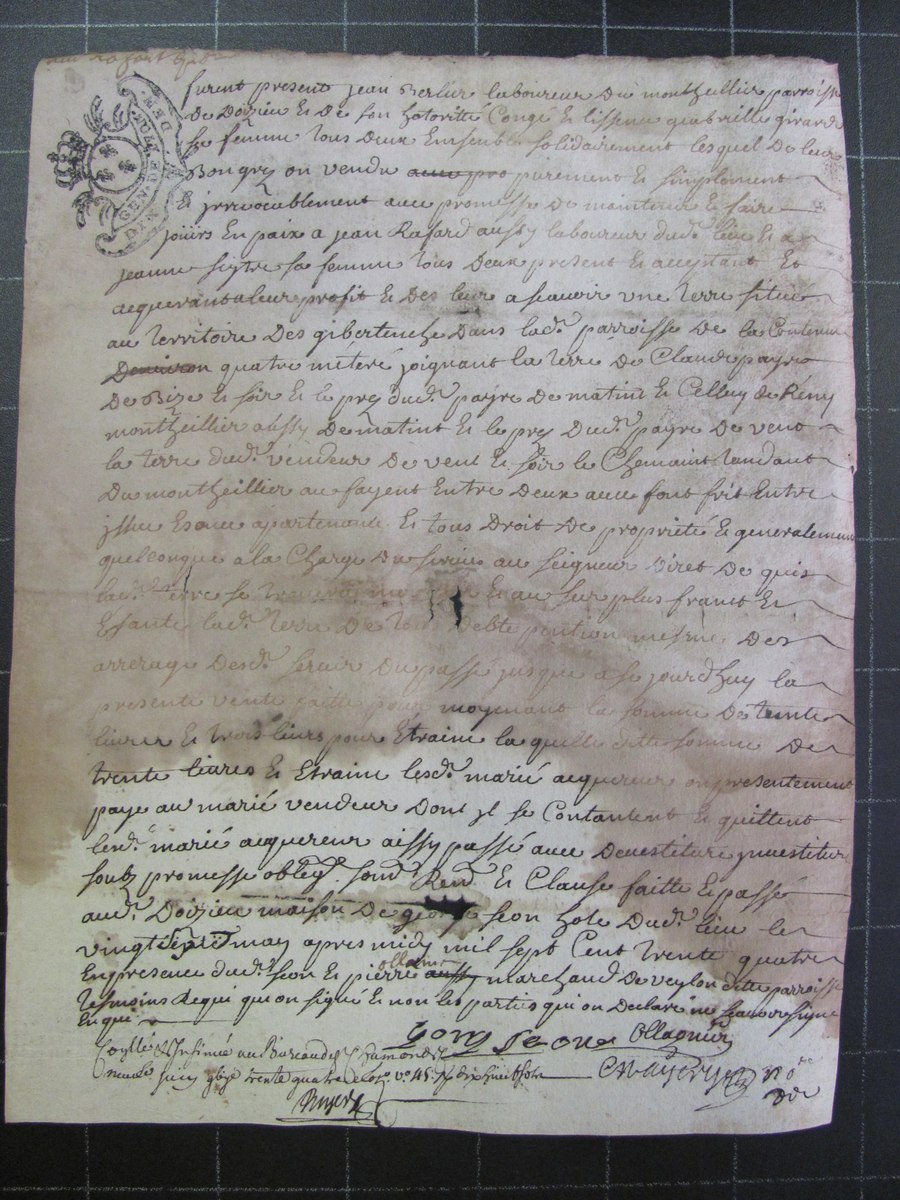 furent present jean Berlier laboureur du montheillier parroisse
de Doizieu et de son hotoritté Congé et lissence quabrielle girard
sa femme tous deux Ensemble solidairement lesquel de leur
Bongrez on vendu purement et simplement
et jrrevocablement avec promesse de maintenir et faire
jouirs En paix a jean Rafard aussy laboureur dud. lieu et a
jeanne sa femme tous deux present et acceptant et
acquerant aleur profit et des leur a scavoir une terre situé
au territoire des gibertenche dans lad. parroisse de la Contenue
Denviron quatre méteré joignant la terre de Claude payre
de Bize et soir et le prez dud. payre de matint et Celluy de Rémy
montheillier aussy de matint et le prez dud. payre de vent
la terre dud. vendeur de vent et soir le Chemaint tandant
du montheillier au fayent Entre deux avec font frit Entre
jssue Esance apartenance et tous Droit de propriété et generalement
quelconque a la Charge du servis au seigneur Viret de quis
lad. terre se et au sur plus franct et
Exante lad. terre de tous debte pention mesme des
arrerage desd. servir du passé jusque a se jourdhuy la
presente vente faitte pour moyenant la somme de trente
livres et trois livres pour Étraine la quelle ditte somme de
trente livres et Étraine lesd. marié acquereur on presentement
paye au marié vendeur Dont jl se Contantent et quittent
lesd. marié acquereur aissy passé avec devestiture jnvestiture
soubz promesse oblig. soud. Rend. et Clause faitte et passé
aud. Doizieu maison de george seon hote dud. lieu le
vingt sept may apres midy mil sept Cent trente quatre
En presence dud. seon et pierre ollanier marchand de veylon ditte parroisse
tesmoins Requi qui on signé et non les parties qui on Declaré ne scavoir signé
Enquis
gorg seon Ollagnier
Conllé & Insinué au Bureau de St Chamond le
juin 1734 trente quatre f. v. 48. Rx dix huit sols